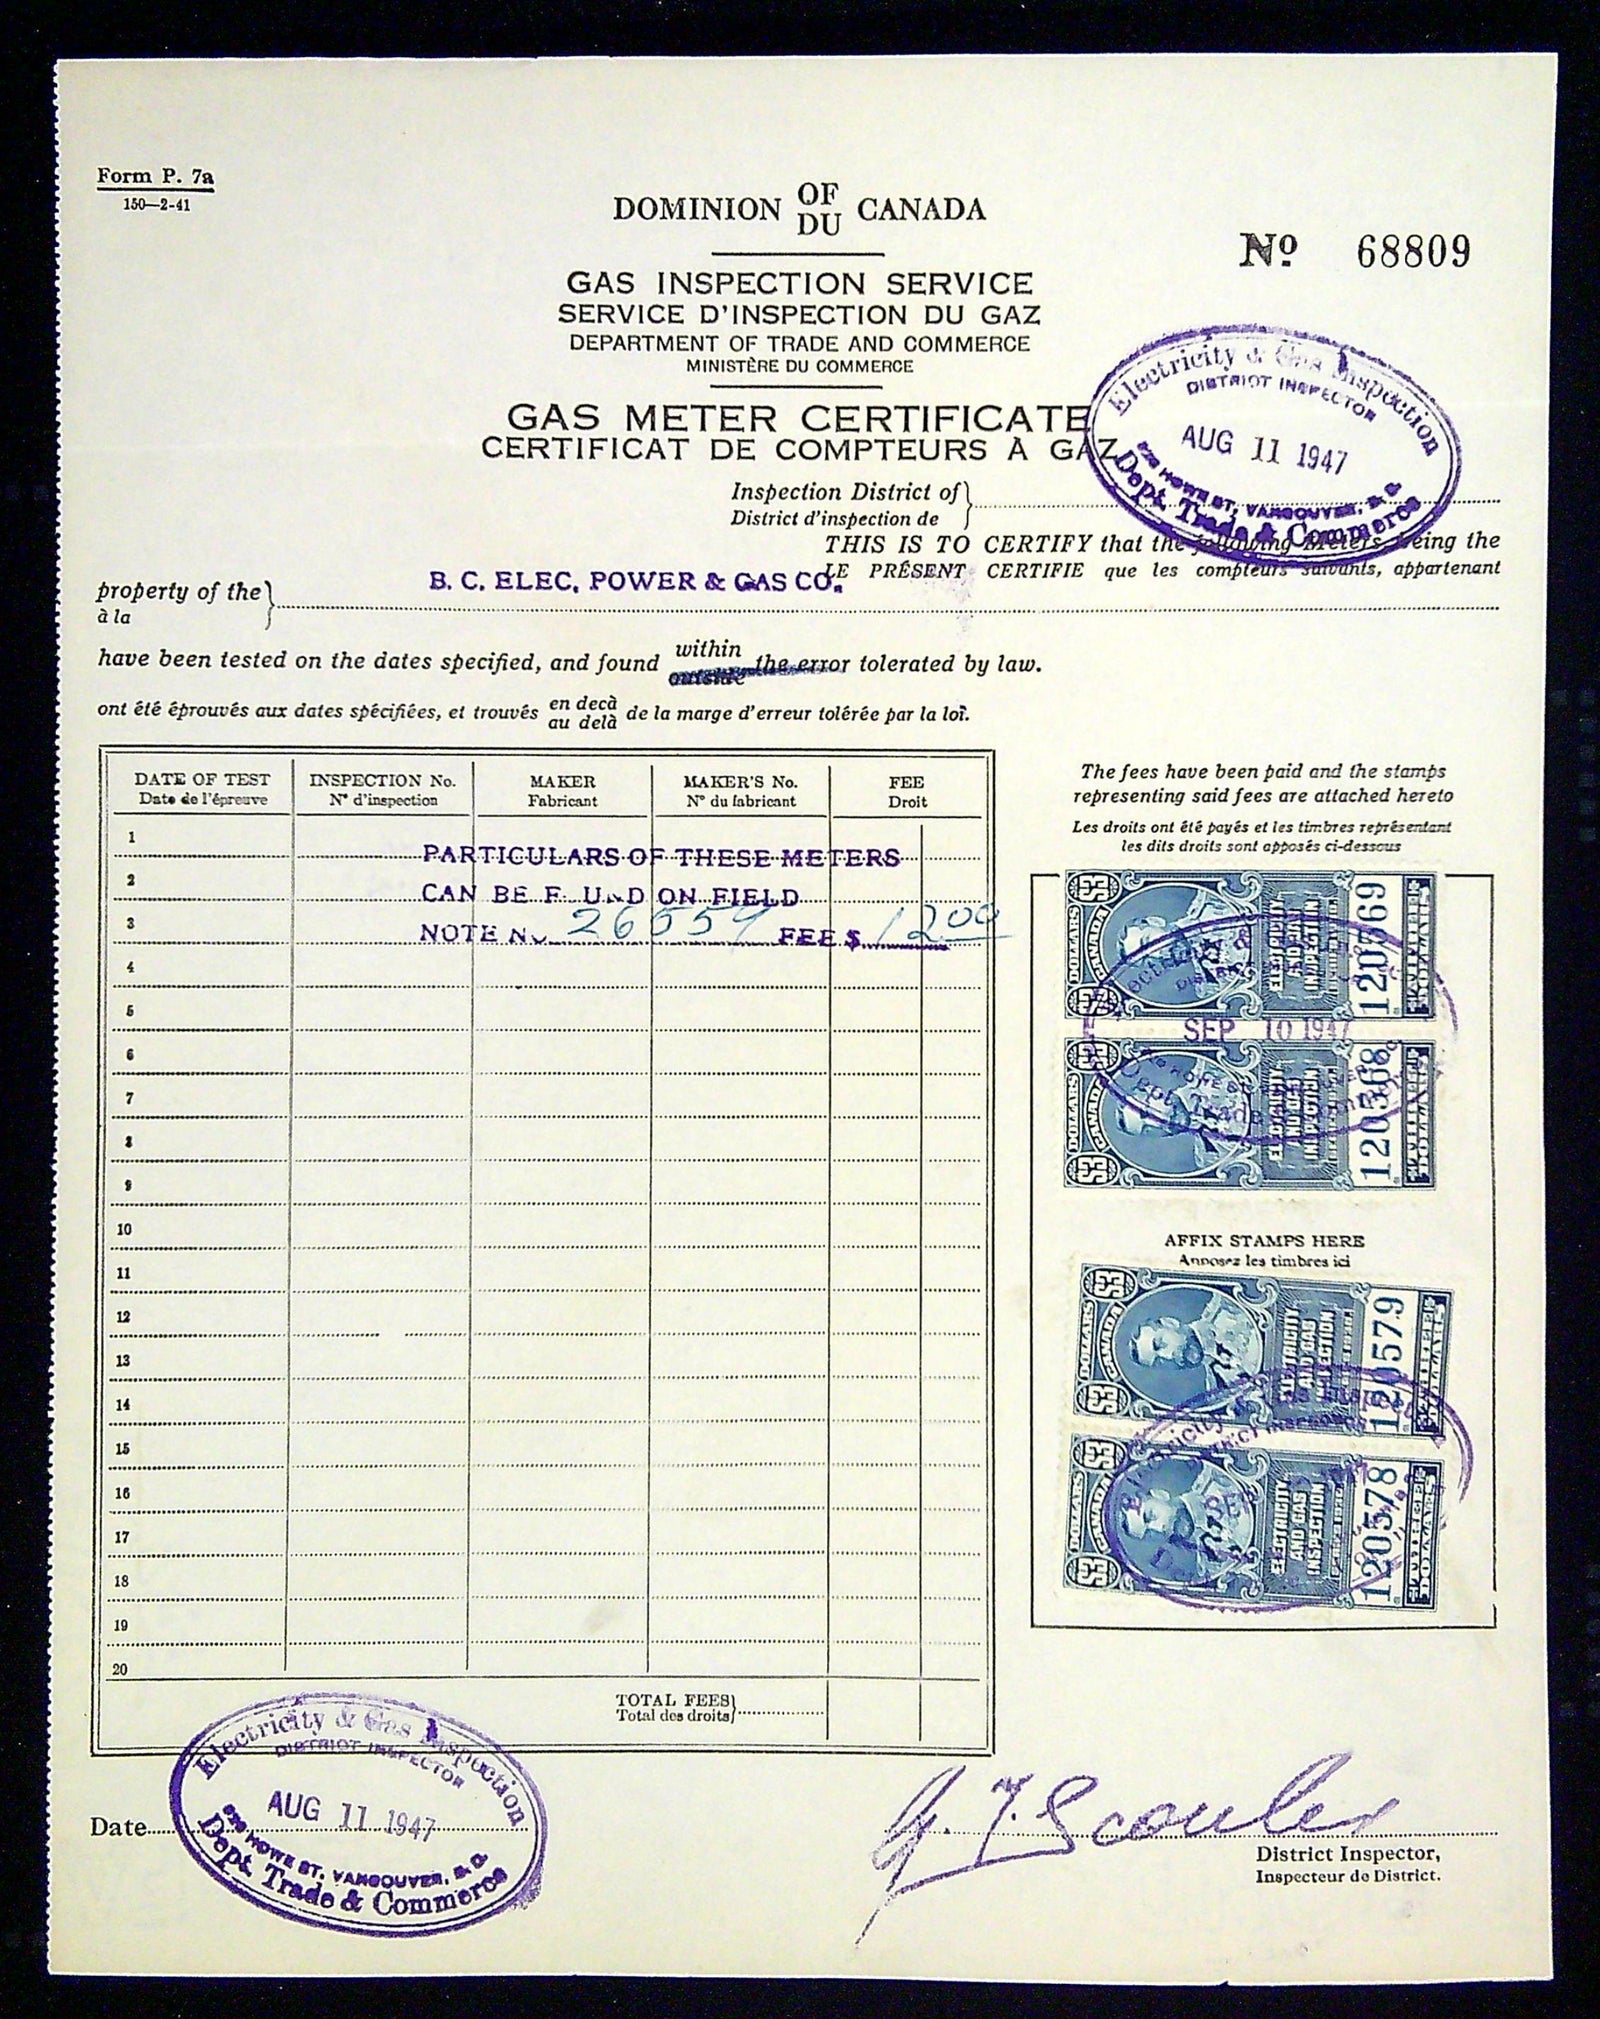 Form P. 7a
150—2-41
DOMINION OF DU CANADA
No 68809
GAS INSPECTION SERVICE
SERVICE D'INSPECTION DU GAZ
DEPARTMENT OF TRADE AND COMMERCE
MINISTÈRE DU COMMERCE
GAS METER CERTIFICATE
CERTIFICAT DE COMPTEURS À GAZ
Electricity & Gas Inspection
DISTRICT INSPECTOR
AUG 11 1947
HOWE ST, VANCOUVER, B C
Dept. Trade & Commerce
Inspection District of
District d'inspection de
THIS IS TO CERTIFY that the following Meters being the
LE PRÉSENT CERTIFIE que les compteurs suivants, appartenant
property of the
à la
B. C. ELEC. POWER & GAS CO.
have been tested on the dates specified, and found within outside the error tolerated by law.
ont été éprouvés aux dates spécifiées, et trouvés en decà au delà de la marge d'erreur tolérée par la loi.
DATE OF TEST INSPECTION No. MAKER MAKER'S No. FEE
Date de l'épreuve N° d'inspection Fabricant N° du fabricant Droit
1
PARTICULARS OF THESE METERS
2
CAN BE F UND ON FIELD
3
NOTE No 26559 FEE $ 12 00
4
5
6
7
8
9
10
11
12
13
14
15
16
17
18
19
20
TOTAL FEES
Total des droits
The fees have been paid and the stamps
representing said fees are attached hereto
Les droits ont été payés et les timbres représentant
les dits droits sont apposés ci-dessous
$3 DOLLARS $3
CANADA
ELECTRICITY
AND GAS
INSPECTION
120569
SEP 10 1947
$3 DOLLARS $3
CANADA
ELECTRICITY
AND GAS
INSPECTION
120568
AFFIX STAMPS HERE
Apposez les timbres ici
$3 DOLLARS $3
CANADA
ELECTRICITY
AND GAS
INSPECTION
120579
$3 DOLLARS $3
CANADA
ELECTRICITY
AND GAS
INSPECTION
120578
Electricity & Gas Inspection
DISTRICT INSPECTOR
AUG 11 1947
HOWE ST, VANCOUVER, B C
Dept. Trade & Commerce
Date
District Inspector,
Inspecteur de District.